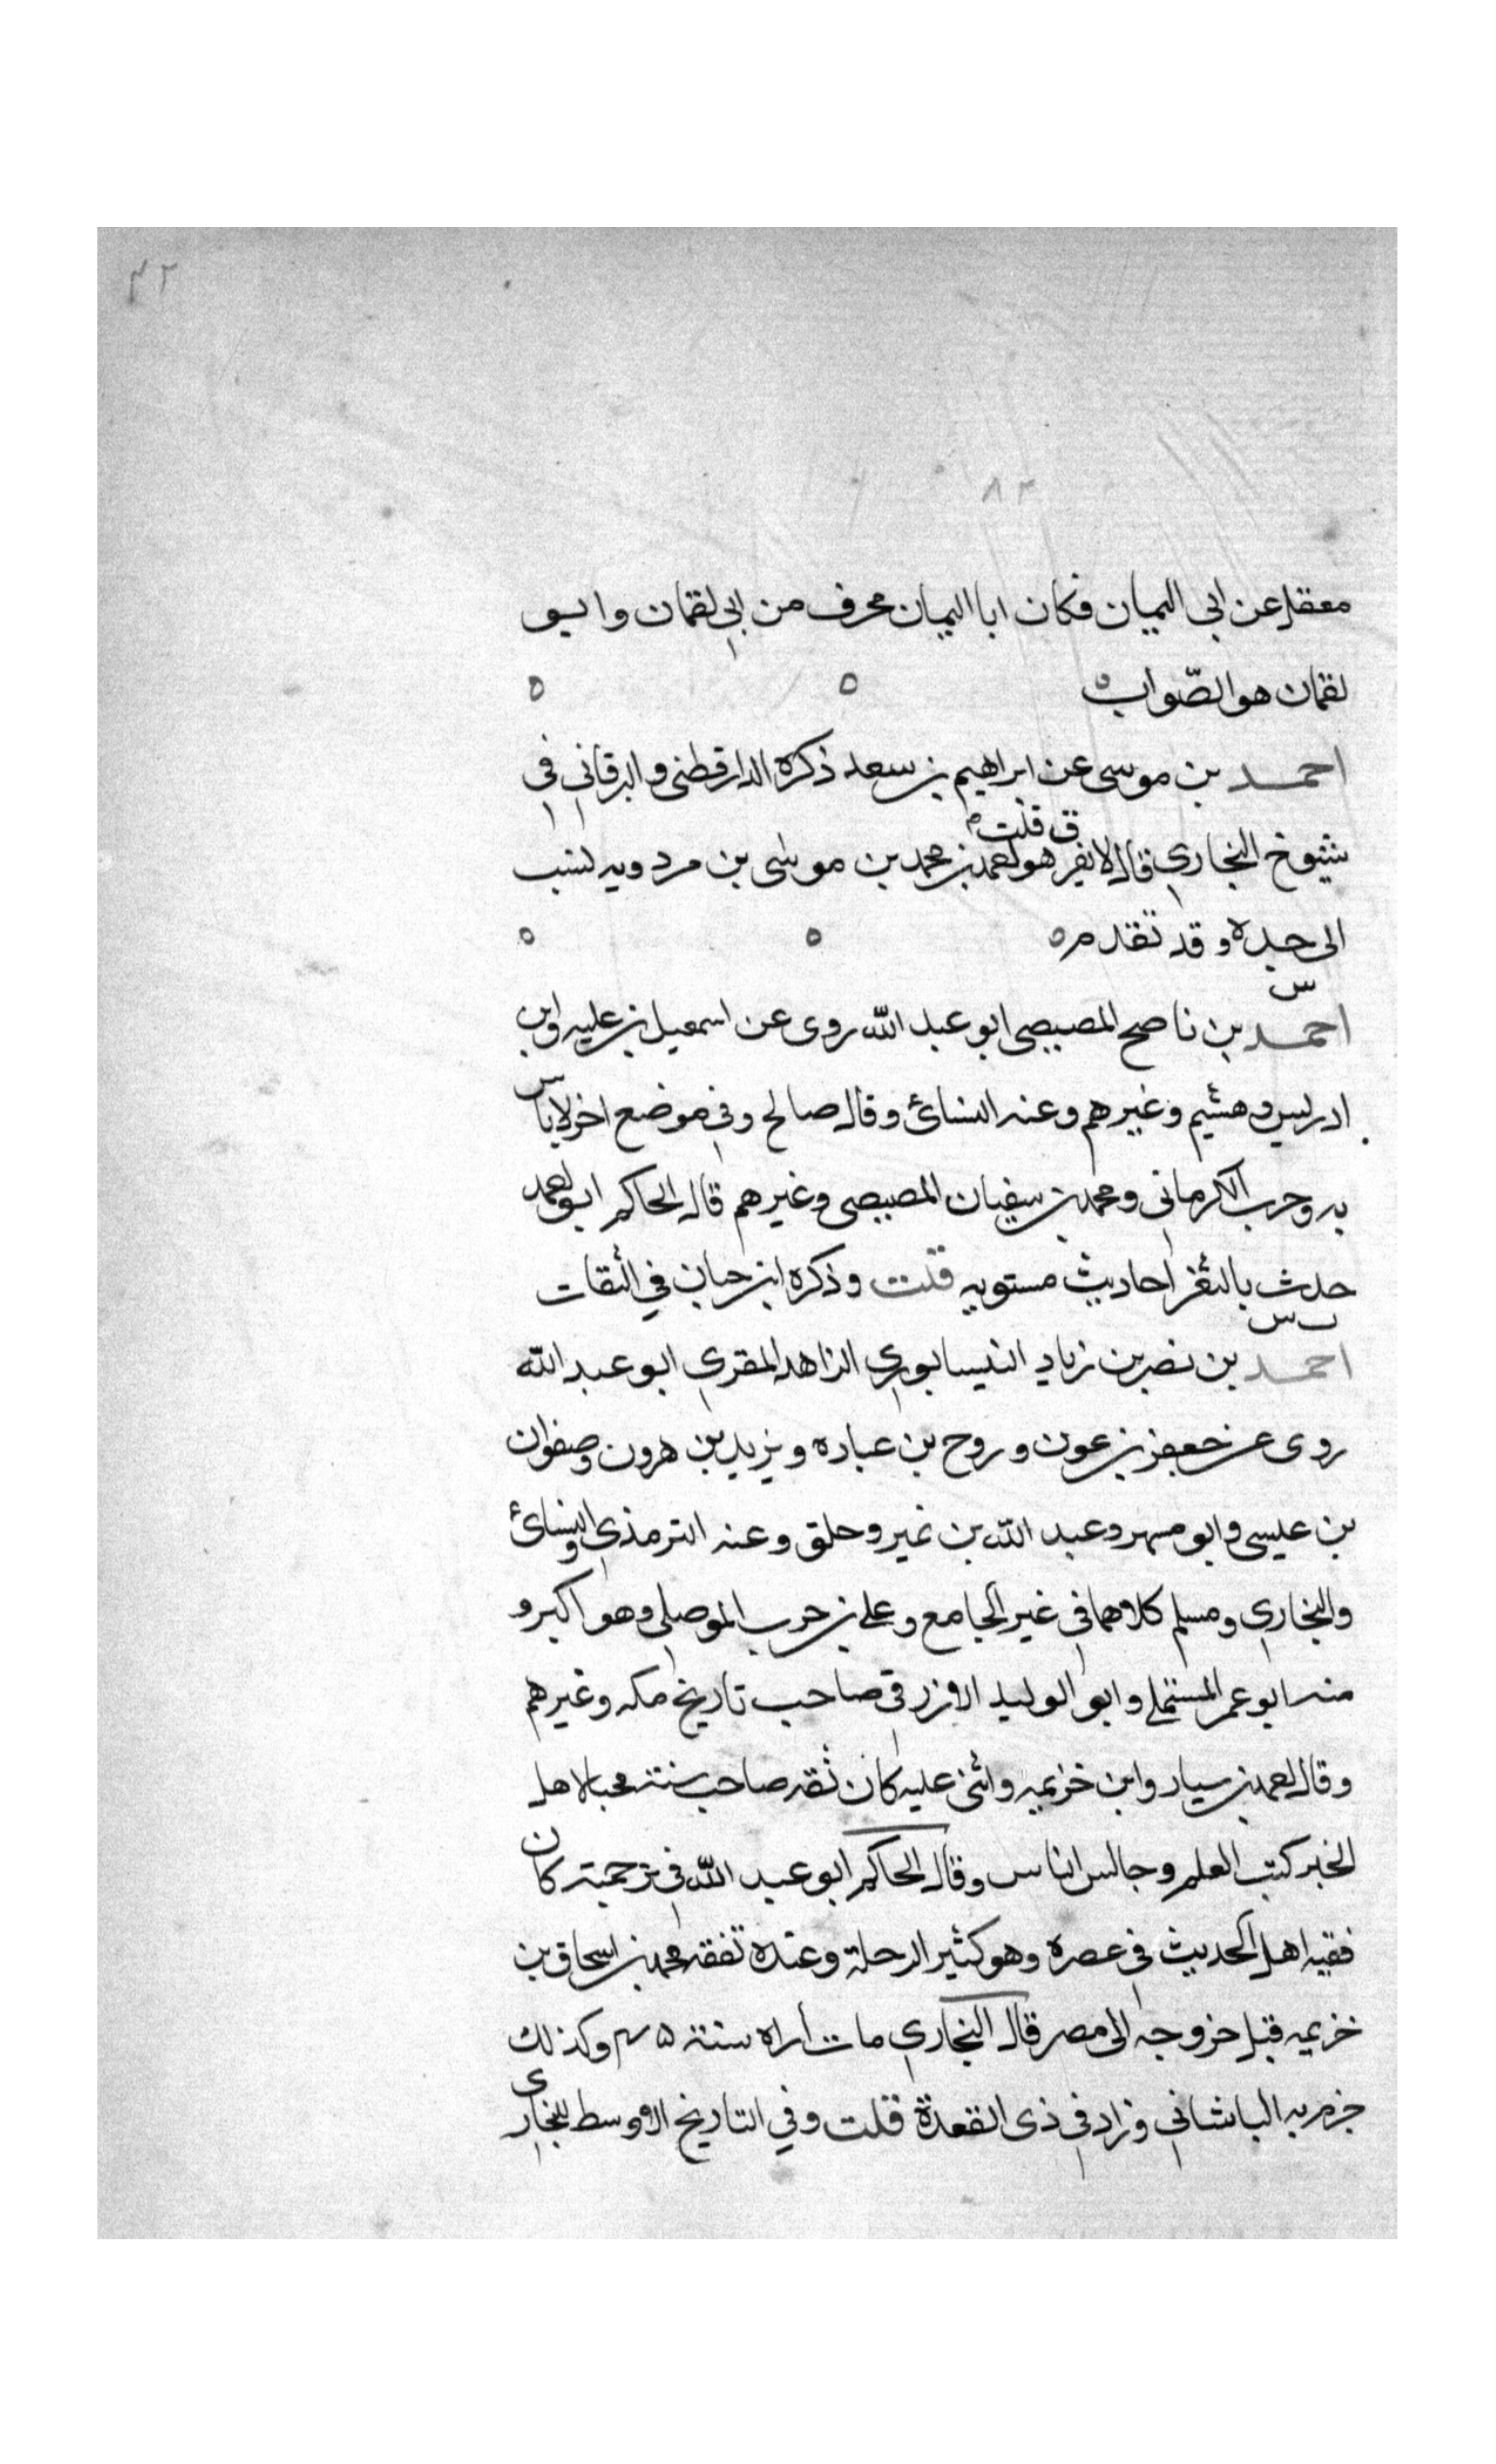 ٤٢
٨٢
معقل عن ابى اليمان فكان ابا اليمان محرف من ابى لقمان وابو
لقمان هو الصّواب ه ه ه
احمد بن موسى عن ابراهيم بن سعد ذكره الدارقطنى والبرقانى فى
ق قلت
شيوخ البخاري قال لا يعرف هو احمد بن محمد بن موسى بن مردويه نسب
الى جده وقد تقدم ه ه ه
س
احمد بن ناصح المصيصى ابو عبد الله روى عن اسمعيل بن عليه وابن
ادريس وهشيم وغيرهم وعنه النسائ وقال صالح وفى موضع اخر لا باس
به وحرب الكرمانى ومحمد بن سفيان المصيصى وغيرهم قال الحاكم ابو احمد
حدث بالثغر احاديث مستويه قلت وذكره ابن حبان في الثقات
ت س
احمد بن نصر بن زياد النيسابوري الزاهد المقري ابو عبد الله
روى عن جعفر بن عون وروح بن عباده ويزيد بن هرون وصفوان
بن عيسى وابو مسهر وعبد الله بن نمير وخلق وعنه الترمذي والنسائ
والبخاري ومسلم كلاهما فى غير الجامع وعلى بن حرب الموصلى وهو اكبر و
منه ابو عمر المستملى وابو الوليد الازرقى صاحب تاريخ مكه وغيرهم
وقال احمد بن سيار وابن خزيمه واثنى عليه كان ثقه صاحب سنته محبا لاهل
الخير كتب العلم وجالس الناس وقال الحاكم ابو عبد الله فى ترجمته كان
فقيه اهل الحديث فى عصره وهو كثير الرحلة وعنده تفقه محمد بن اسحاق بن
خزيمه قبل خروجه الى مصر قال البخاري مات أراه سنة ٢٤٥ وكذلك
جزم به الباشانى وزاد فى ذى القعدة قلت وفي التاريخ الاوسط للبخاري